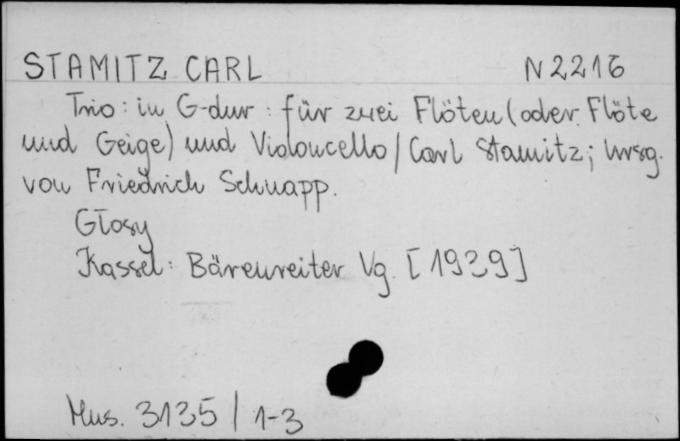 STAMITZ CARL N 2216
Trio : in G-dur : für zwei Flöten (oder Flöte
und Geige) und Violoncello / Carl Stamitz ; hrsg.
von Friedrich Schnapp.
Głosy
Kassel : Bärenreiter Vg. [1939]
Mus. 3135 / 1-3